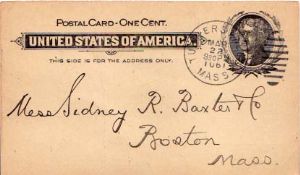 POSTAL CARD - ONE CENT.
UNITED STATES OF AMERICA.
THIS SIDE IS FOR THE ADDRESS ONLY.
MAR
22
MASS
Mess Sidney R. Baxter & Co
Boston
Mass.